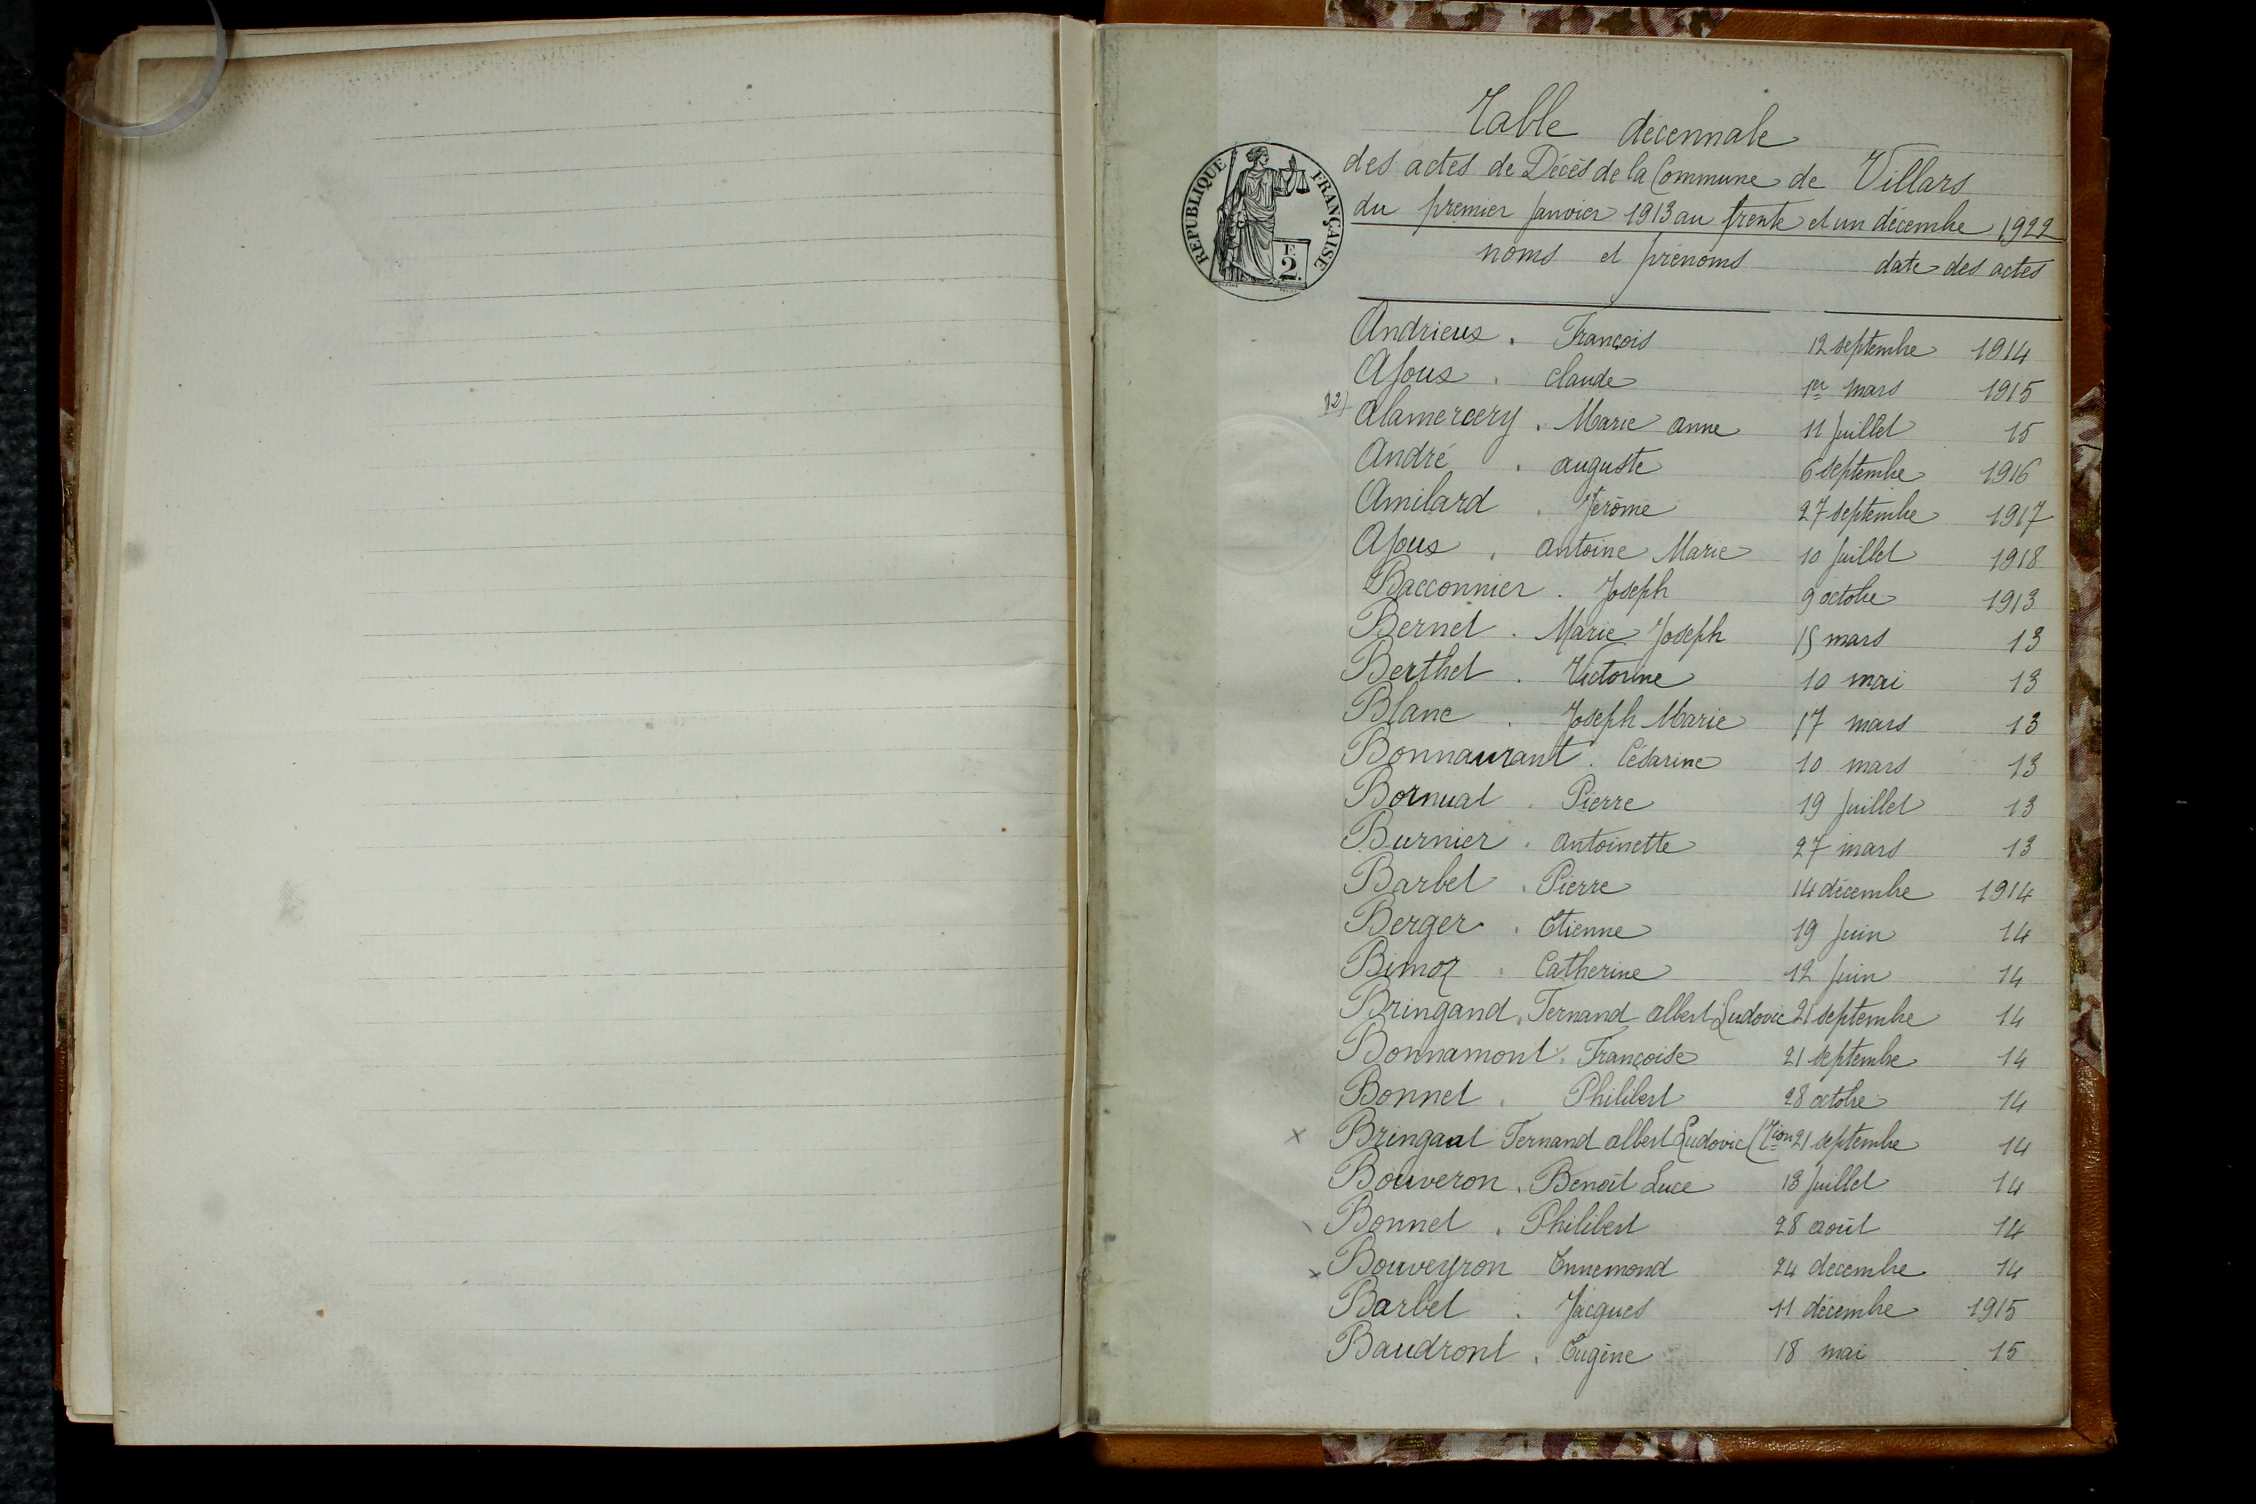 Table décennale
des actes de Décès de la Commune de Villars
du premier Janvier 1913 au trente et un décembre 1922
RÉPUBLIQUE FRANÇAISE
2
noms et prénoms date des actes
Andrieux . François 12 septembre 1914
Ajoux . Claude 1er mars 1915
Alamercery . Marie anne 11 Juillet 15
André . auguste 6 septembre 1916
Amilard . Jérôme 27 septembre 1917
Ajoux . antoine Marie 10 Juillet 1918
Bacconnier . Joseph 9 octobre 1913
Bernet . Marie Joseph 15 mars 13
Berthet . Victorine 10 mai 13
Blanc . Joseph Marie 17 mars 13
Bonnaurant . Césarine 10 mars 13
Bornuat . Pierre 19 Juillet 13
Burnier . antoinette 27 mars 13
Barbet . Pierre 14 décembre 1914
Berger . Etienne 19 Juin 14
Bimoz . Catherine 12 Juin 14
Bringand . Fernand albert Ludovic 21 septembre 14
Bonnamont . Françoise 21 septembre 14
Bonnet . Philibert 28 octobre 14
x Bringaut Fernand albert Ludovic 21 septembre 14
Bouveron . Benoît Luce 18 Juillet 14
Bonnet . Philibert 28 août 14
x Bouveyron Ennemond 24 décembre 14
Barbet . Jacques 11 décembre 1915
Baudront . Eugène 18 mai 15